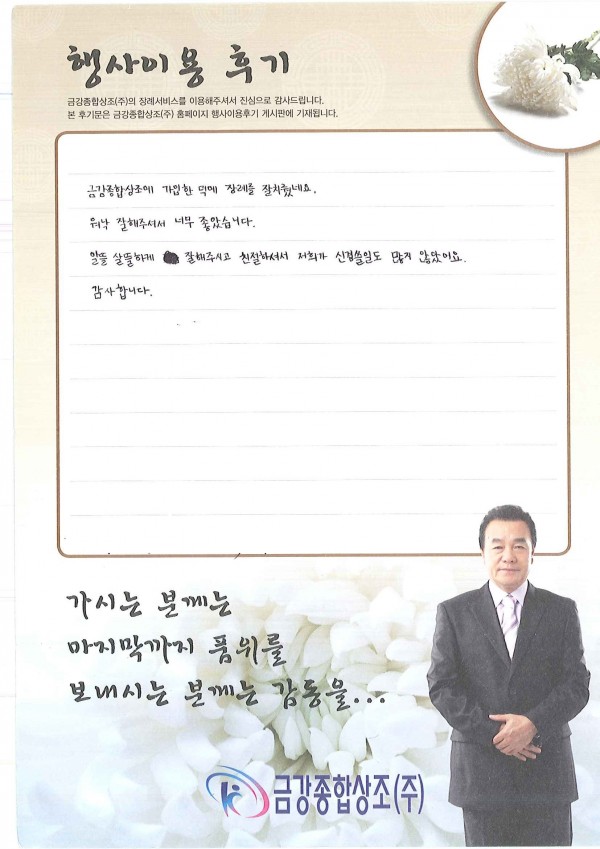 행사이용 후기
금강종합상조(주)의 장례서비스를 이용해주셔서 진심으로 감사드립니다.
본 후기문은 금강종합상조(주) 홈페이지 행사이용후기 게시판에 기재됩니다.
금강종합상조에 가입한 덕에 장례를 잘치렀네요.
워낙 잘해주셔서 너무 좋았습니다.
알뜰 살뜰하게 잘해주시고 친절하셔서 저희가 신경쓸일도 많지 않았어요.
감사합니다.
가시는 분께는
마지막까지 품위를
보내시는 분께는 감동을...
금강종합상조(주)